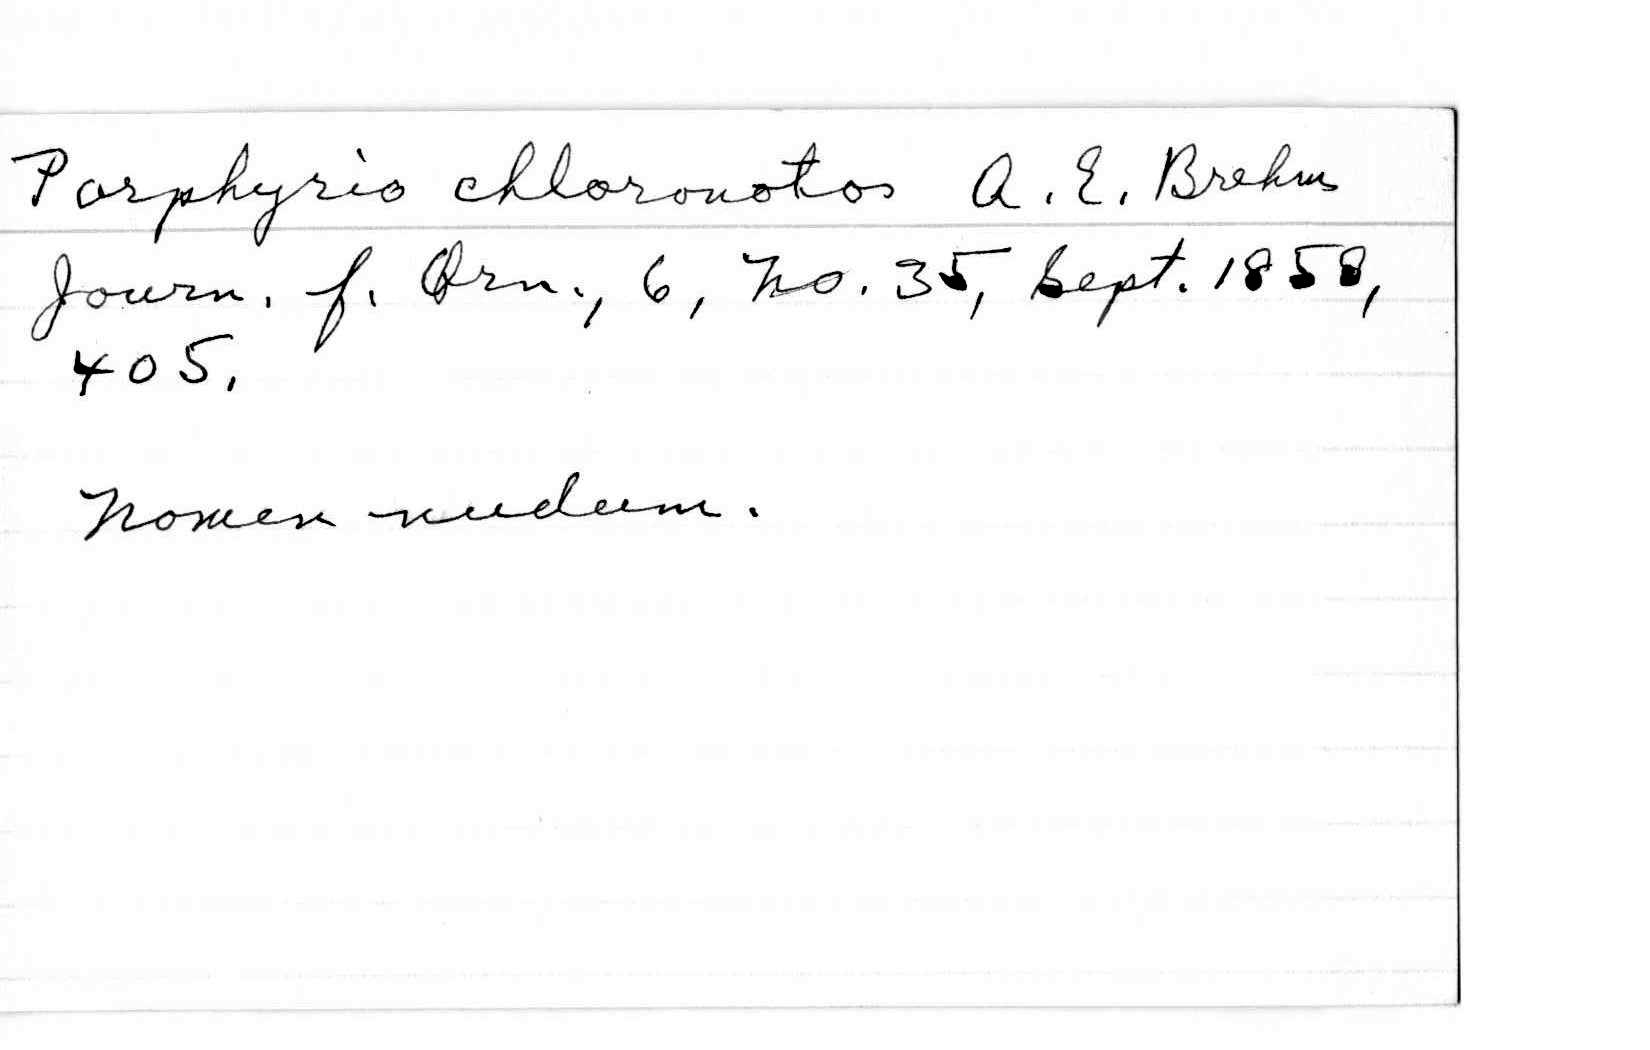 Porphyrio chloronotos A. E. Brehm
Journ. f. Orn., 6, No. 35, Sept. 1858,
405.
Nomen nudum.